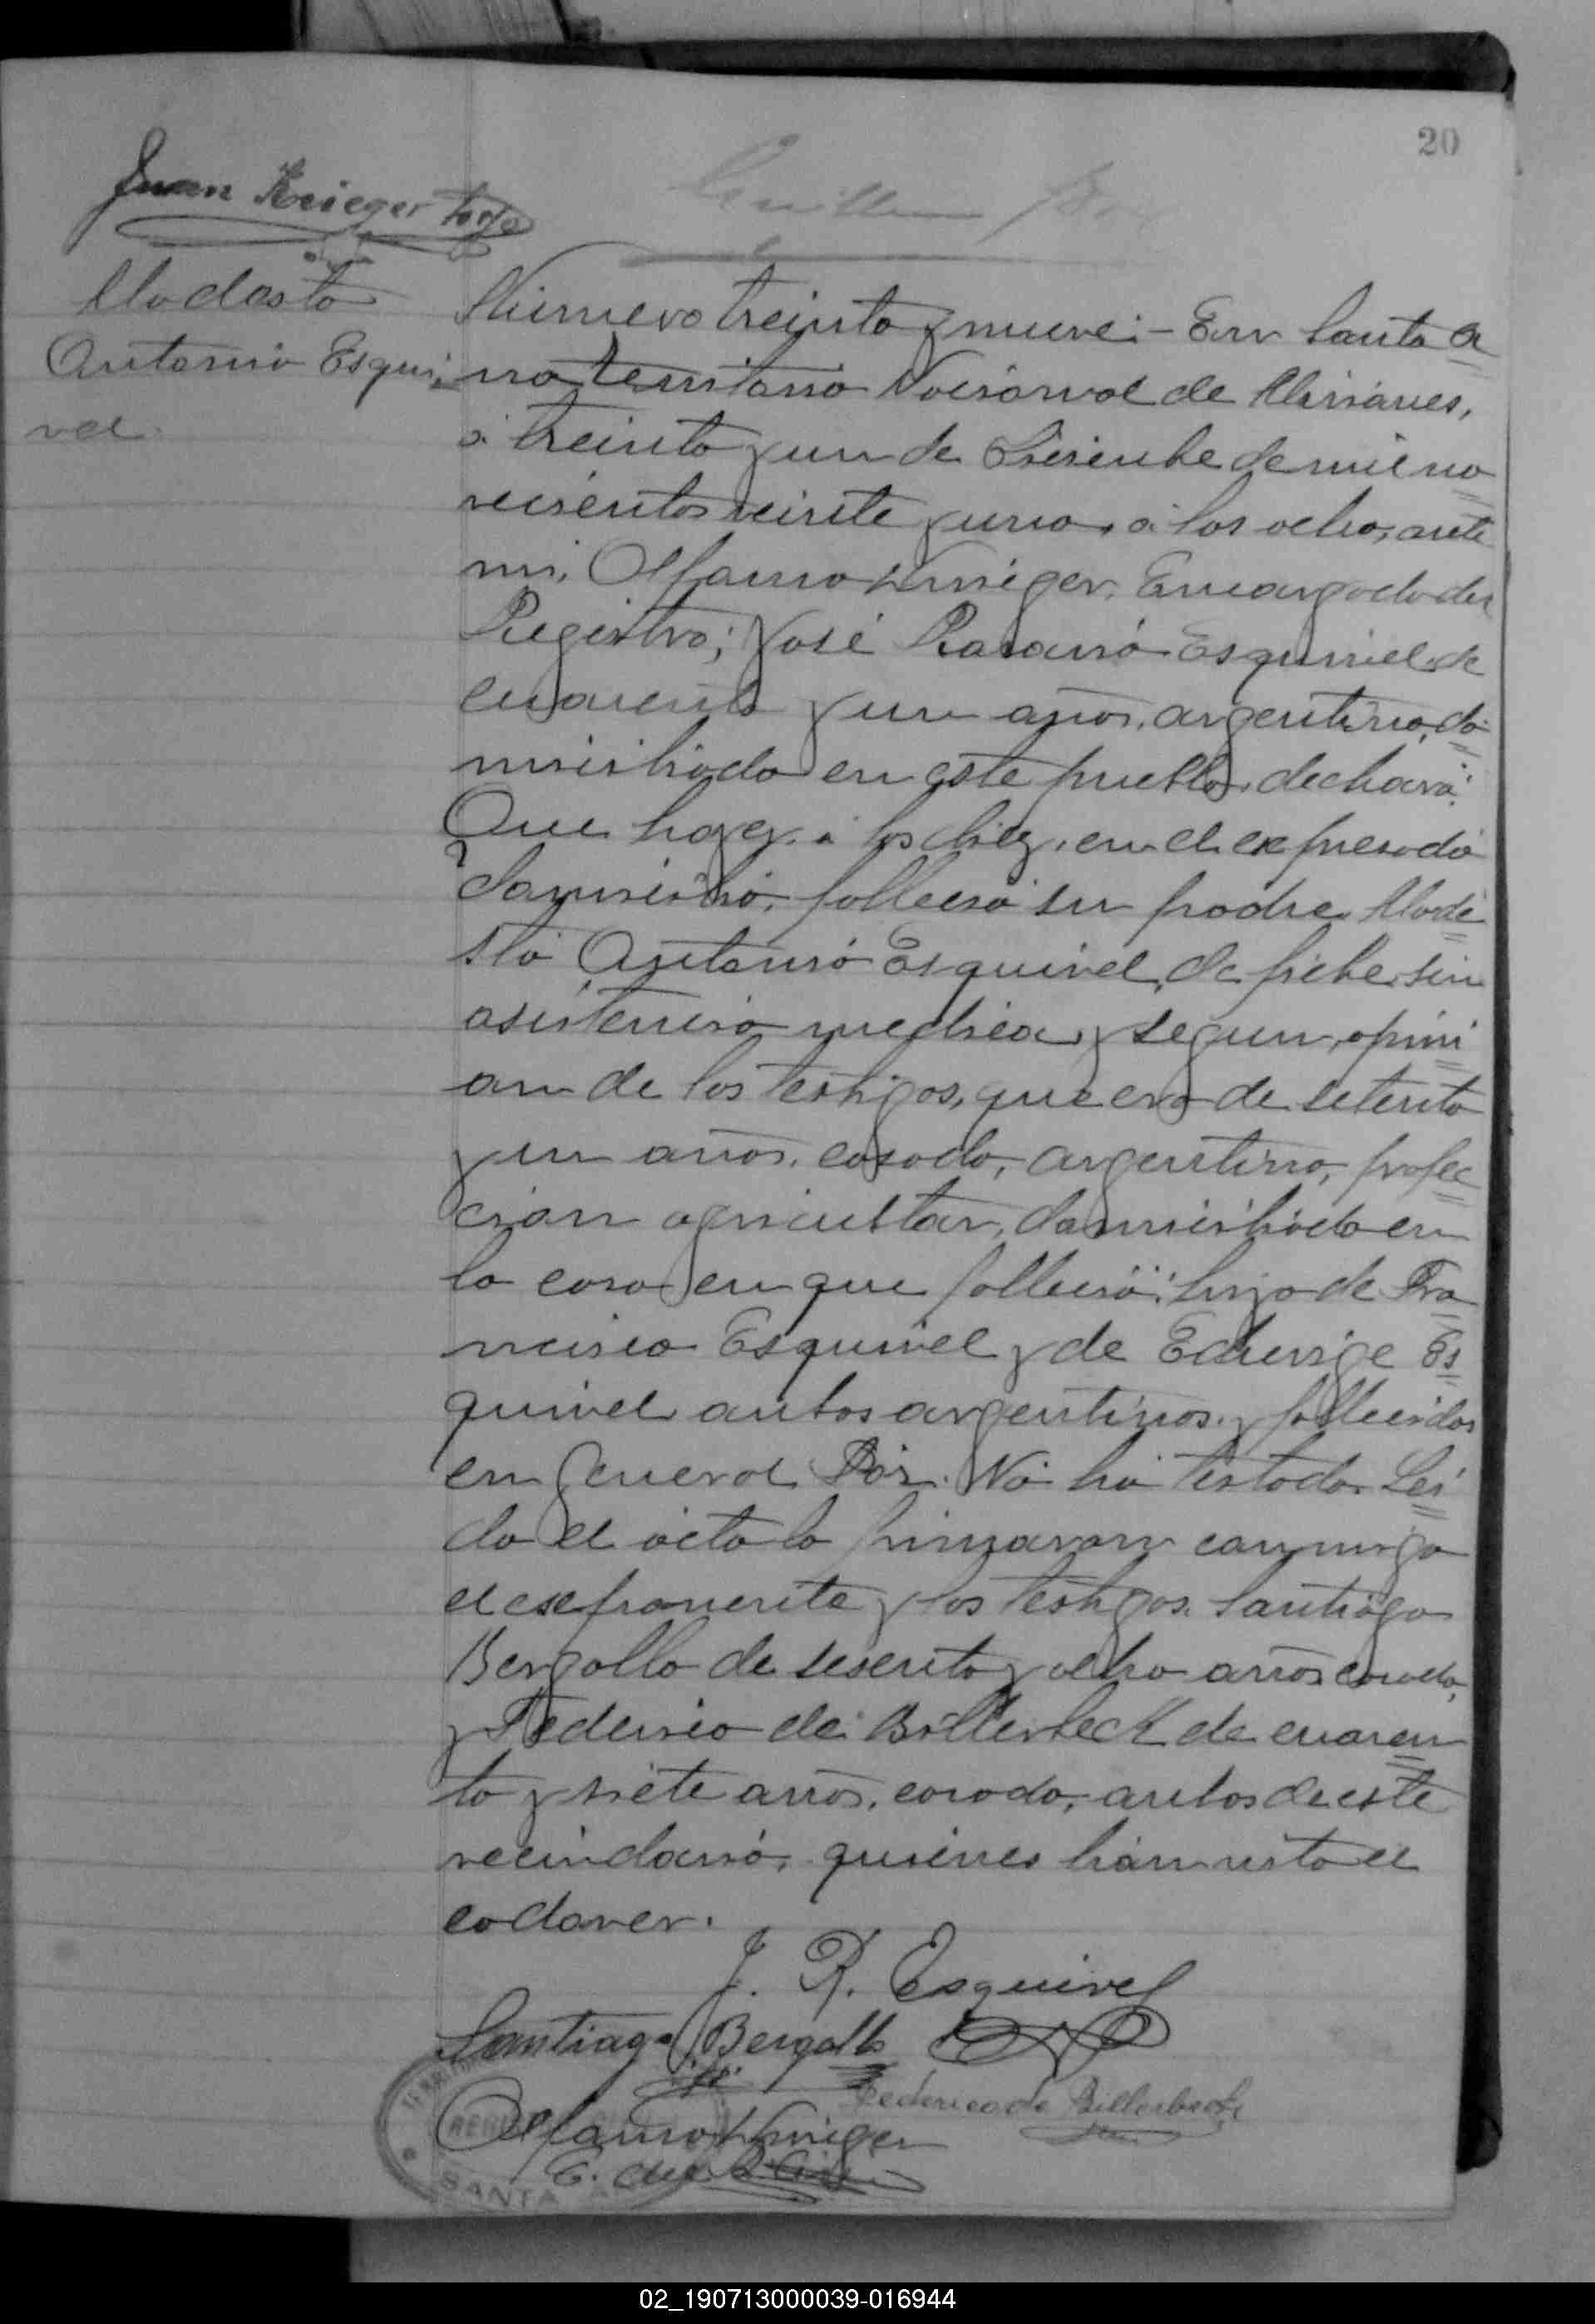 20
Juan Krieger tego
Modesto
Antonio Esqui
vel.
Número treinta y nueve:- En Santa A
na territorio Nacional de Misiones,
á treinta y un de Diciembre de mil no
vecientos veinte y uno, á las ocho, ante
mi, Krieger, Encargado del
Registro; José Rosario Esquivel, de
cuarenta y un años, argentino, do
miciliado en este pueblo, declaró:
Que hoy, á las diez, en el expresado
domicilio, falleció su padre Mode
sto Antonio Esquivel, de fiebre, sin
asistencia medica, y segun, opini
on de los testigos, que era de setenta
y un años, casado, argentino, profec
cion agricultor, domiciliado en
la casa en que falleció: hijo de Fra
ncisco Esquivel y de Eduvige Es
quivel, ambos argentinos y fallecidos
en General Paz. No há testado. Lei
da el acta la firmaron conmigo
el exponente y los testigos. Santiago
Bergallo de sesenta y ocho años, casado,
y Federico de Billerbeck de cuaren
ta y siete años, casado, ambos de este
vecindario, quienes hán visto el
cadaver.
J. R. Esquivel
Santiago Bergallo
Federico de Billerbeck
Krieger
E. del
SANTA
02_190713000039-016944